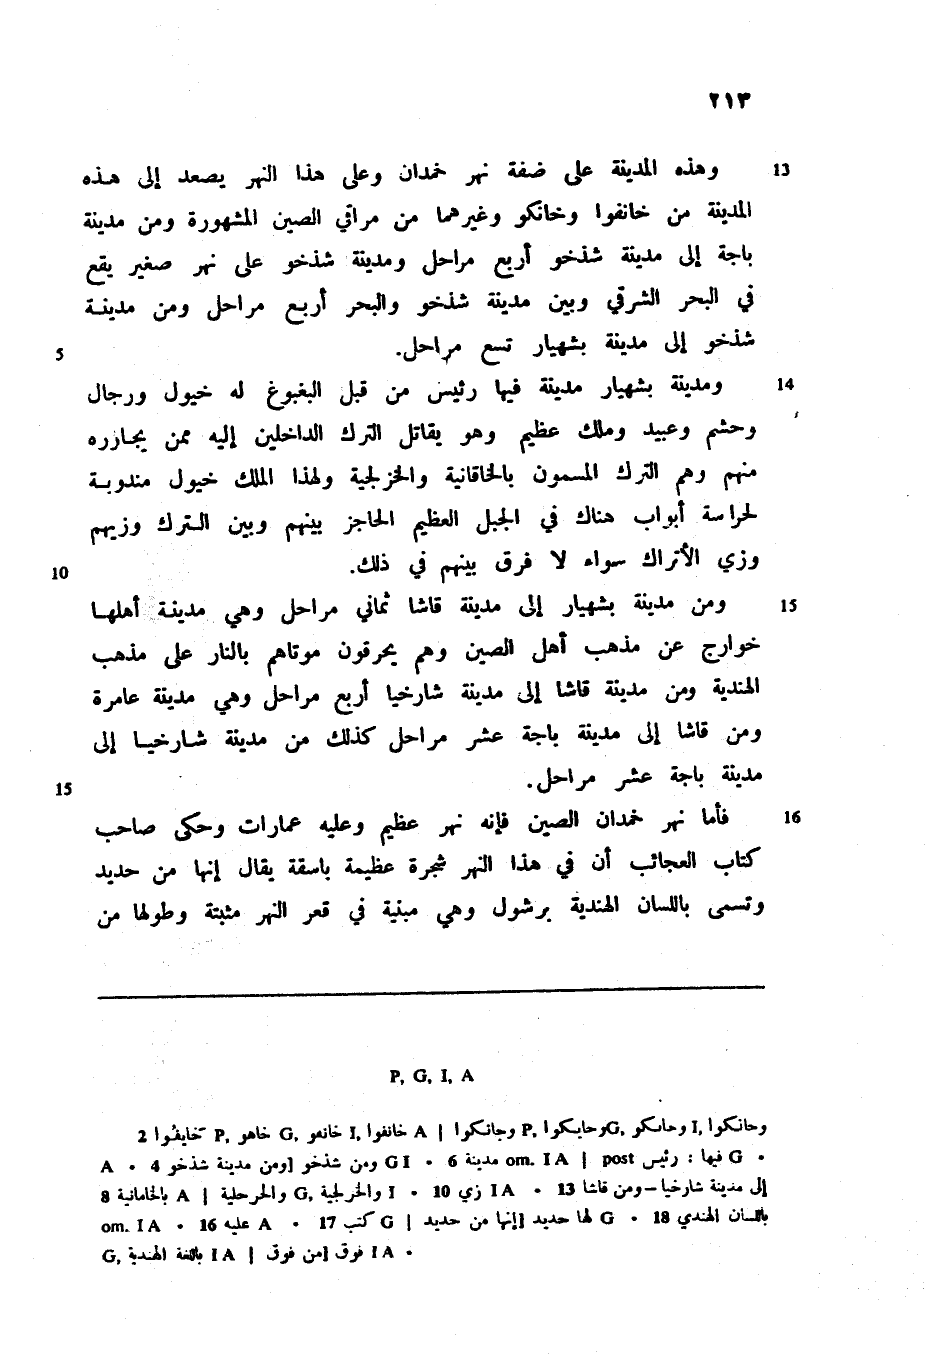 ٢١٣
13 وهذه المدينة على ضفة نهر خمدان وعلى هذا النهر يصعد إلى هذه
المدينة من خانفوا وخانكو وغيرهما من مراقي الصين المشهورة ومن مدينة
باجة إلى مدينة شذخو أربع مراحل ومدينة شذخو على نهر صغير يقع
في البحر الشرقي وبين مدينة شذخو والبحر أربع مراحل ومن مدينة
شذخو إلى مدينة بشهيار تسع مراحل. 5
14 ومدينة بشهيار مدينة فيها رئيس من قبل البغبوغ له خيول ورجال
وحشم وعبيد وملك عظيم وهو يقاتل الترك الداخلين إليه ممن يجازره
منهم وهم الترك المسمون بالخاقانية والخزلجية ولهذا الملك خيول مندوبة
لحراسة أبواب هناك في الجبل العظيم الحاجز بينهم وبين الترك وزيهم
وزي الأتراك سواء لا فرق بينهم في ذلك. 10
15 ومن مدينة بشهيار إلى مدينة قاشا ثماني مراحل وهي مدينة أهلها
خوارج عن مذهب أهل الصين وهم يحرقون موتاهم بالنار على مذهب
الهندية ومن مدينة قاشا إلى مدينة شارخيا أربع مراحل وهي مدينة عامرة
ومن قاشا إلى مدينة باجة عشر مراحل كذلك من مدينة شارخيا إلى
مدينة باجة عشر مراحل. 15
16 فأما نهر خمدان الصين فإنه نهر عظيم وعليه عمارات وحكى صاحب
كتاب العجائب أن في هذا النهر شجرة عظيمة باسقة يقال إنها من حديد
وتسمى باللسان الهندية برشول وهي مبنية في قعر النهر مثبتة وطولها من
P, G, I, A
2 خايفوا P, خاهو G, خانفو I, خانفوا A | وجانكوا P, وحايكوا G, وحاىكو I, وحانكوا
A • 4 ومن شذخو [ومن مدينة شذخو G I • 6 مدينة om. I A | post فيها : رئيس G •
8 بالخامانية A | والحرحلية G, والخرلجية I • 10 زي I A • 13 إلى مدينة شارخيا – ومن قاشا
om. I A • 16 عليه A • 17 كتب G | لها حديد [إنها من حديد G • 18 باللسان الهندي
G, باللغة الهندية I A | فوق [من فوق I A •